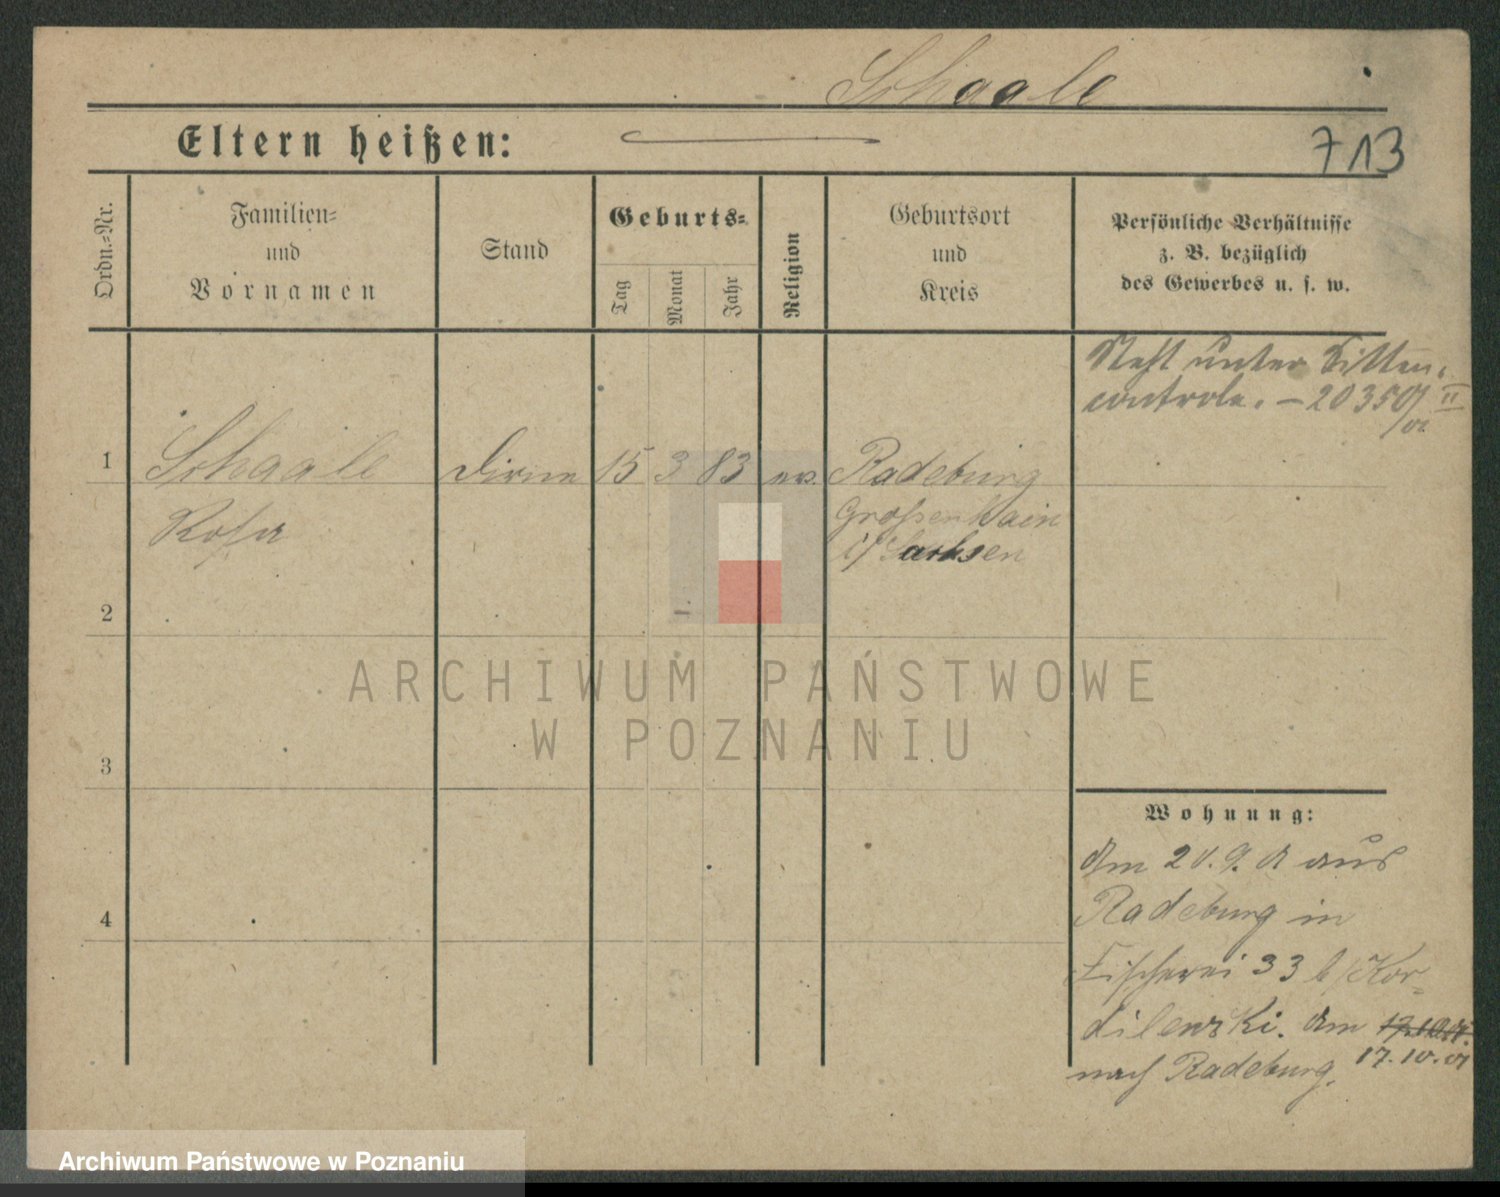 Schaale
Eltern heißen:
713
Ordn.-Nr.
Familien-
und
Vornamen
Stand
Geburts-
Tag
Monat
Jahr
Religion
Geburtsort
und
Kreis
Persönliche Verhältnisse
z. B. bezüglich
des Gewerbes u. s. w.
Steht unter Sitten-
controle. – 20350/ II
1
Schaale Dirne 15 3 83 ev. Radeburg
Rosa
Großenhain
i/ Sachsen
2
3
4
Wohnung:
Am 20.9. aus
Radeburg in
Fischerei 33 b/Kor-
dilewski. Am
17.10.01
nach Radeburg.
ARCHIWUM PAŃSTWOWE
W POZNANIU
Archiwum Państwowe w Poznaniu